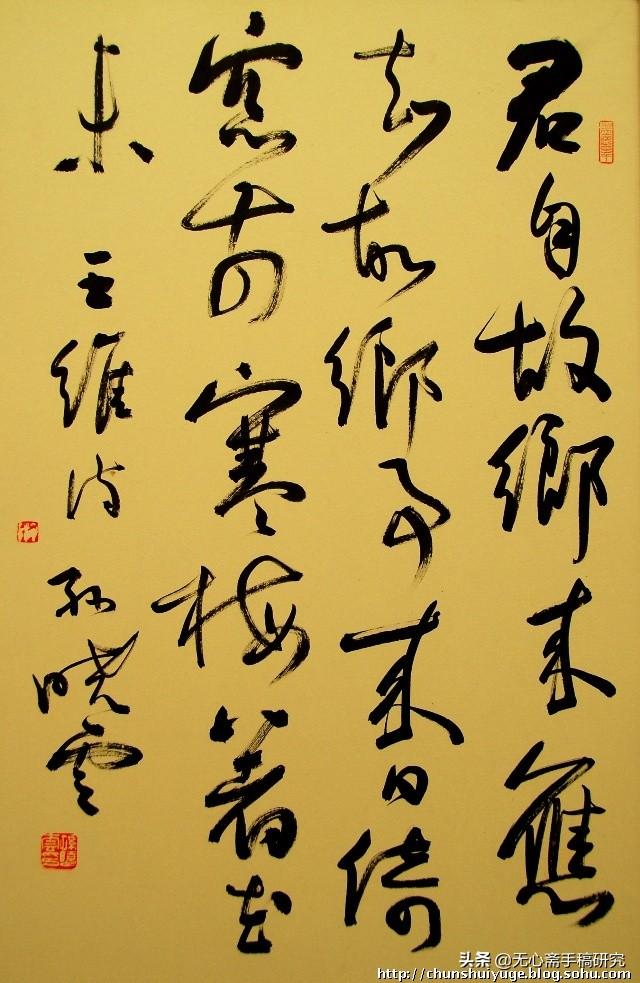 君自故鄉来應
知故鄉事来日倚
窓前寒梅著花
未 王維诗 孙晓雲
头条 @无心斋手稿研究
http://chunshuiyuge.blog.sohu.com